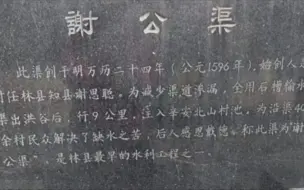 謝公渠
此渠创于明万历二十四年（公元1596年），始创人是
时任林县知县谢思聪。为减少渠道渗漏，全用石槽输水
渠出洪谷后，行9公里，注入辛安北山村池。为沿渠
余村民众解决了缺水之苦，后人感恩戴德，称此渠为"谢
公渠"，是林县最早的水利工程之一。